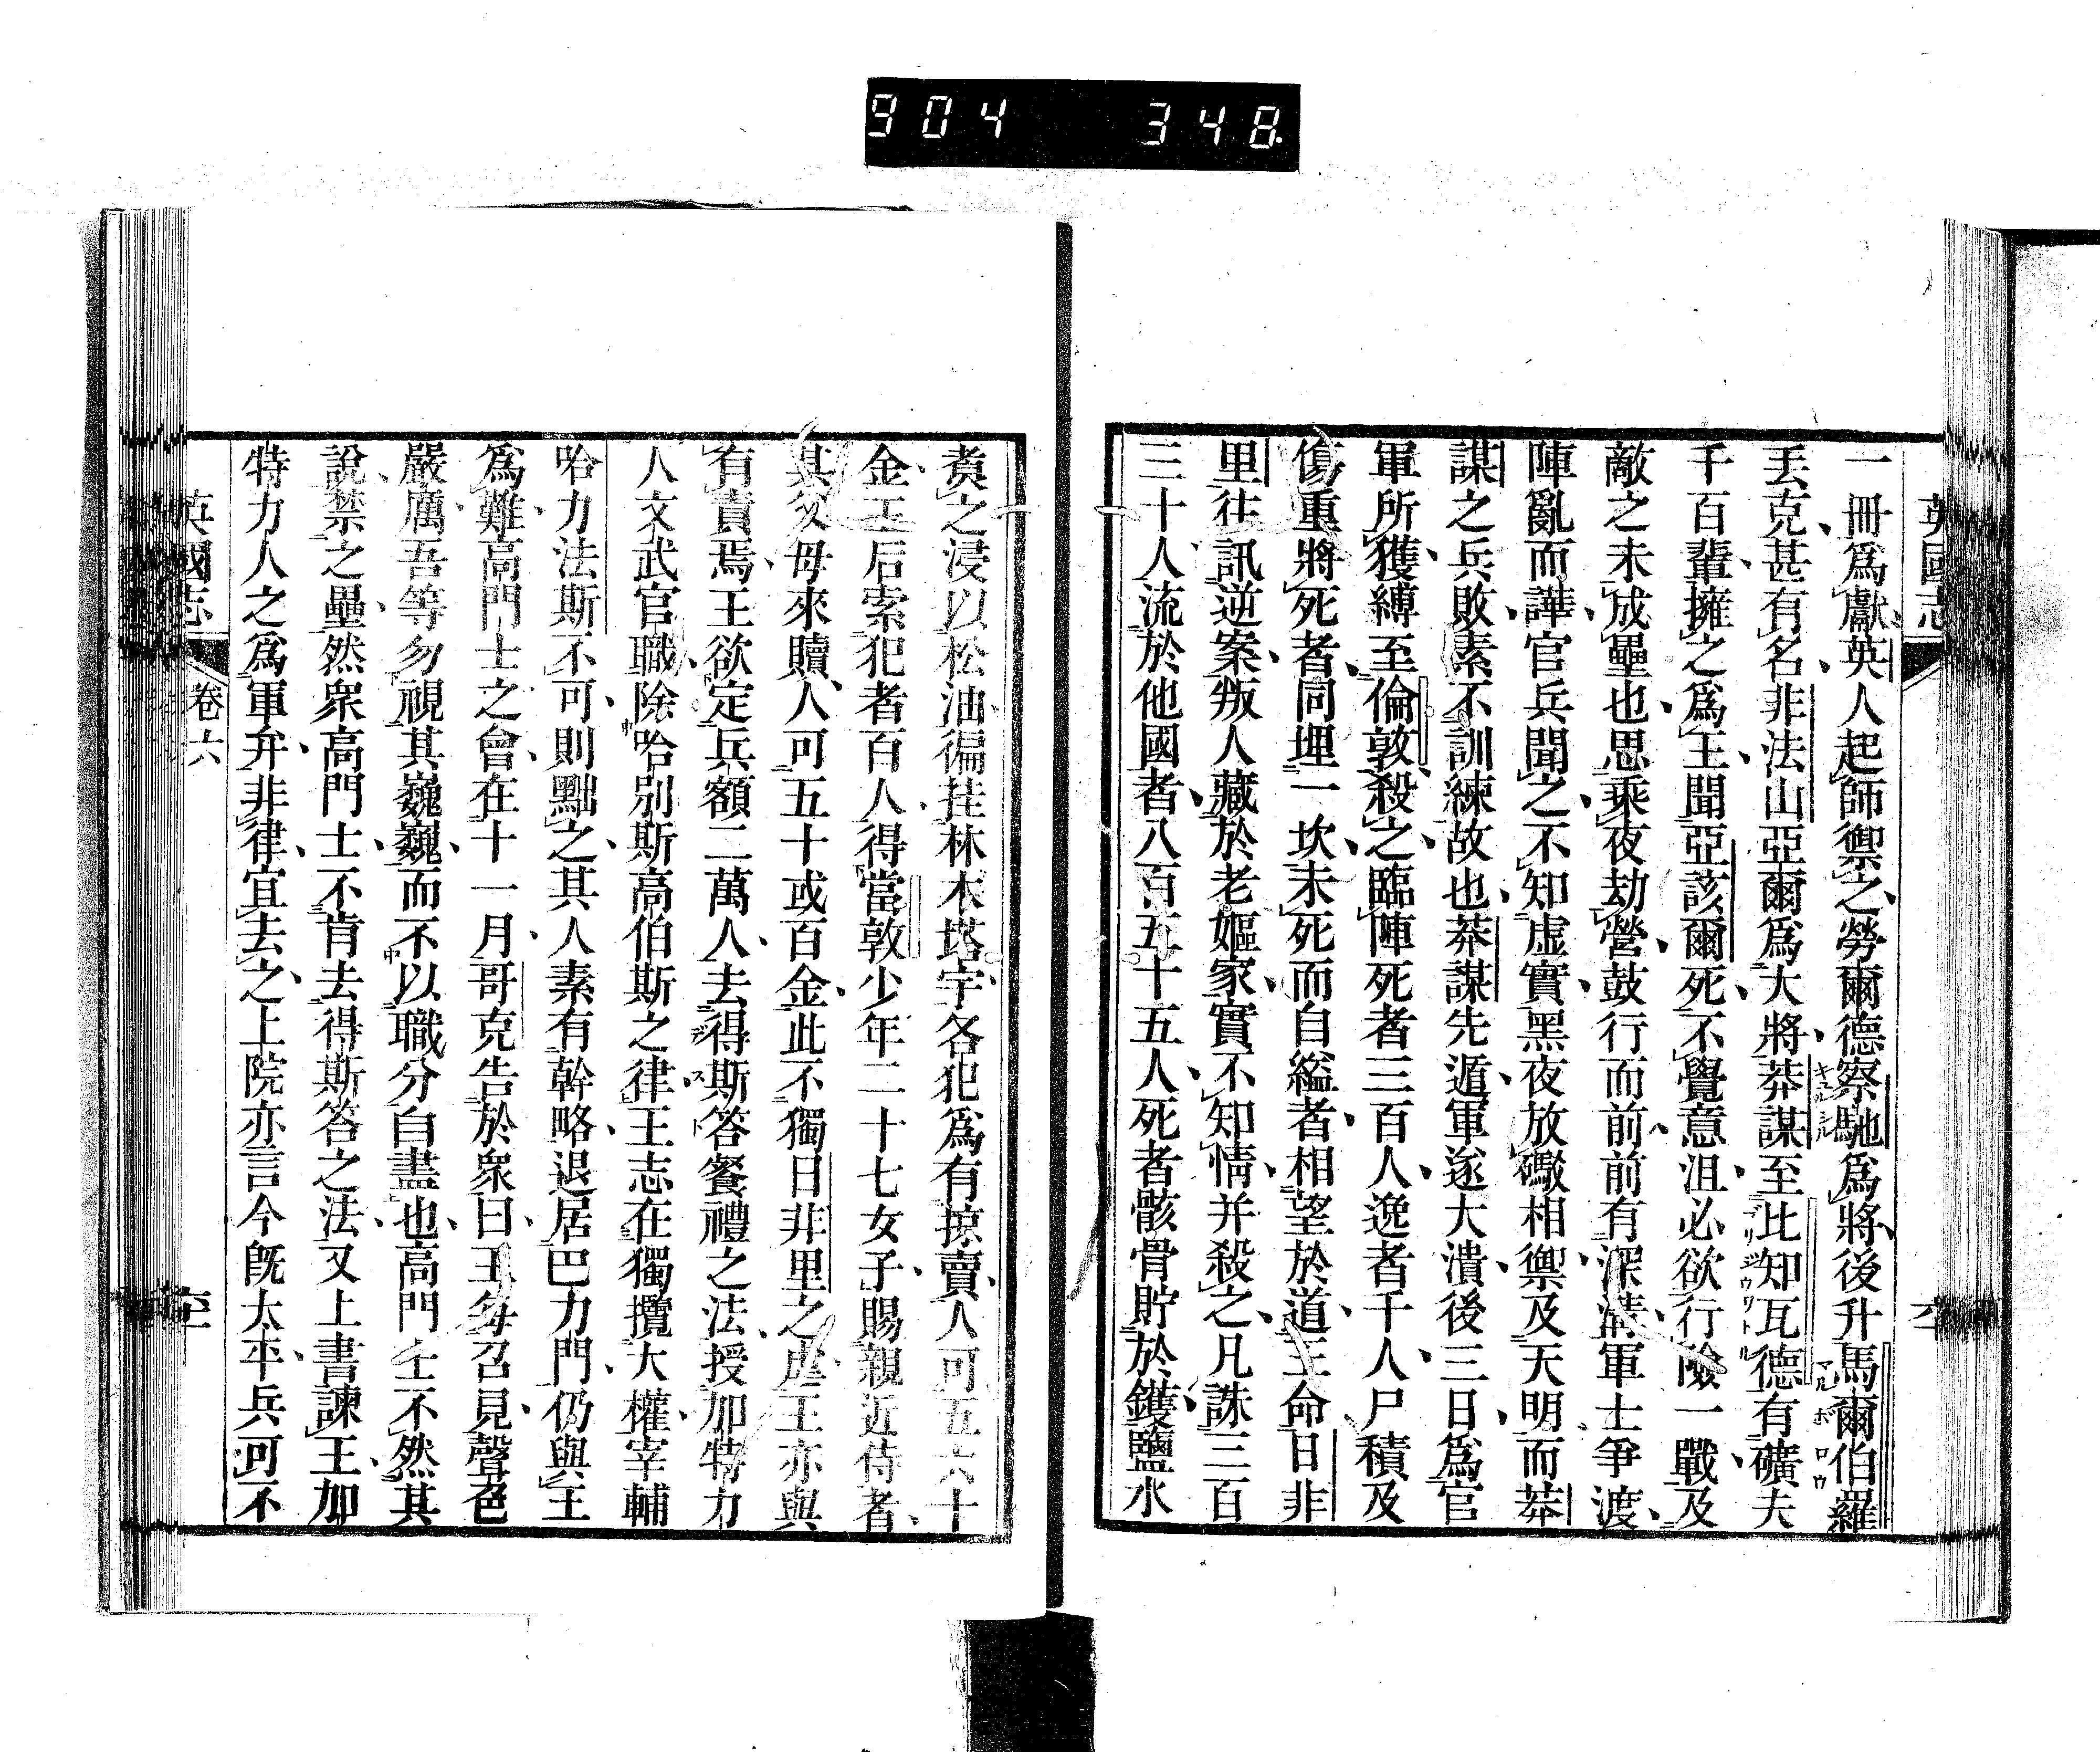 904 348
英國志
一冊爲獻英人起師禦之勞爾德察馳爲將後升馬爾伯羅
丟克甚有名非法山亞爾爲大將莽謀至比知瓦德有礦夫
千百輩擁之爲王聞亞該爾死不覺意沮必欲行險一戰及
敵之未成壘也思乘夜劫營鼓行而前前有深溝軍士爭渡
陣亂而譁官兵聞之不知虛實黑夜放礮相禦及天明而莽
謀之兵敗素不訓練故也莽謀先遁軍遂大潰後三日爲官
軍所獲縛至倫敦殺之臨陣死者三百人逸者千人尸積及
傷重將死者同埋一坎未死而自縊者相望於道王命日非
里往訊逆案叛人藏於老嫗家實不知情并殺之凡誅三百
三十人流於他國者八百五十五人死者骸骨貯於鑊鹽水
煑之浸以松油徧挂林木塔宇各犯爲有掠賣人可五六十
金王后索犯者百人得當敦少年二十七女子賜親近侍者
其父母來贖人可五十或百金此不獨日非里之虐王亦與
有責焉王欲定兵額二萬人去得斯答餐禮之法授加特力
人文武官職除哈別斯高伯斯之律王志在獨攬大權宰輔
哈力法斯不可則黜之其人素有幹略退居巴力門仍與王
爲難高門士之會在十一月哥克告於衆曰王每召見聲色
嚴厲吾等勿視其巍巍而不以職分自盡也高門士不然其
說禁之壘然衆高門士不肯去得斯答之法又上書諫王加
特力人之爲軍弁非律宜去之上院亦言今旣太平兵可不
英國志
卷六